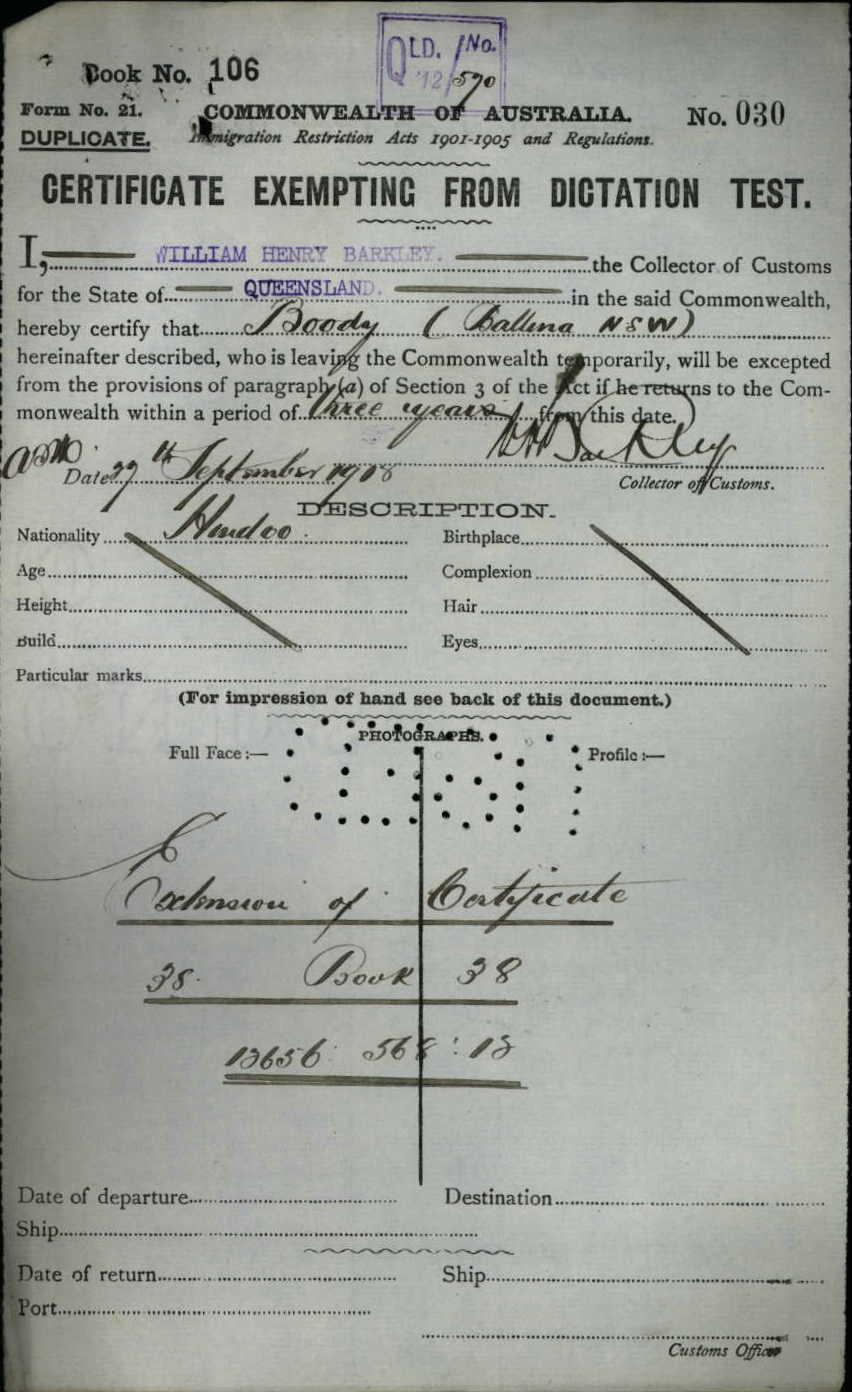 QLD. No.
12/590
Book No. 106
Form No. 21.
COMMONWEALTH OF AUSTRALIA.
No. 030
DUPLICATE.
Immigration Restriction Acts 1901-1905 and Regulations.
CERTIFICATE EXEMPTING FROM DICTATION TEST.
I, WILLIAM HENRY BARKLEY. the Collector of Customs
for the State of QUEENSLAND. in the said Commonwealth,
hereby certify that Boody (Ballina NSW)
hereinafter described, who is leaving the Commonwealth temporarily, will be excepted
from the provisions of paragraph (a) of Section 3 of the Act if he returns to the Com-
monwealth within a period of three years from this date.
WHBarkley
Date 29th September 1908
Collector of Customs.
DESCRIPTION.
Nationality Hindoo
Birthplace
Age
Complexion
Height
Hair
Build
Eyes
Particular marks
(For impression of hand see back of this document.)
PHOTOGRAPHS.
Full Face :—
Profile :—
Extension of Certificate
38 Book 38
13656 568:13
Date of departure
Destination
Ship
Date of return
Ship
Port
Customs Officer